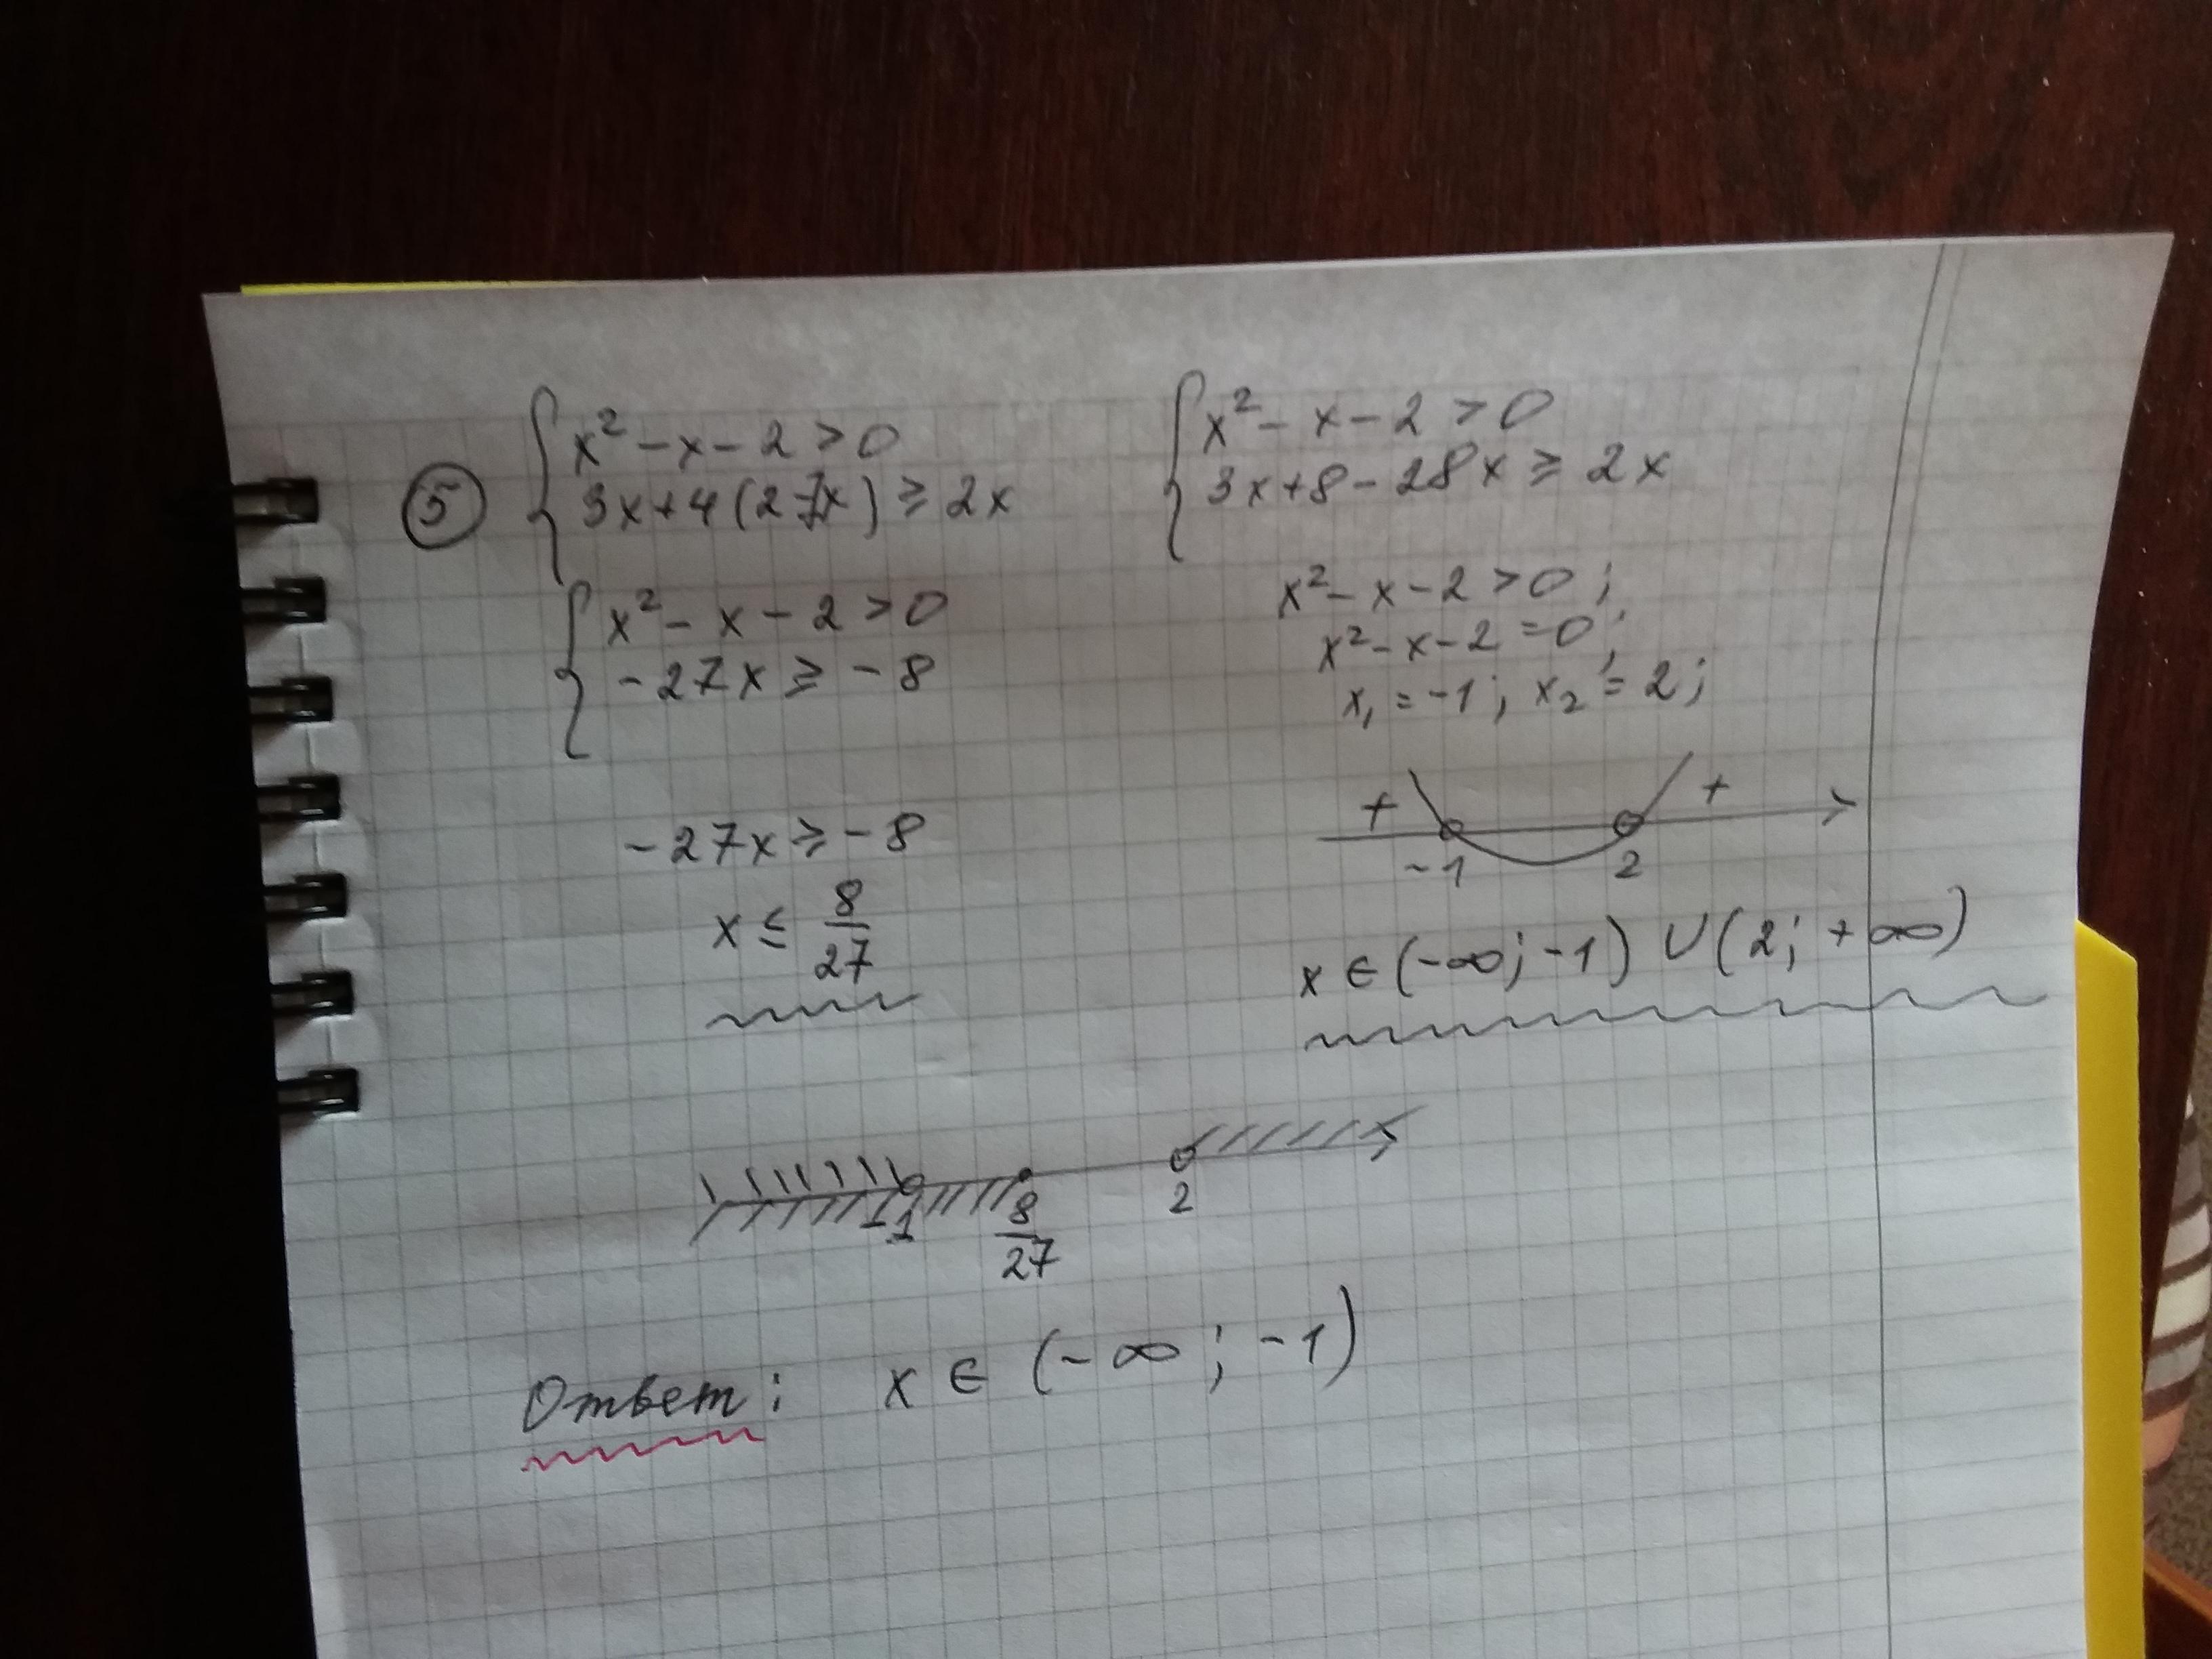 ⑤ { x² - x - 2 > 0
3x + 4(2-7x) ≥ 2x
{ x² - x - 2 > 0
3x + 8 - 28x ≥ 2x
{ x² - x - 2 > 0
-27x ≥ -8
x² - x - 2 > 0;
x² - x - 2 = 0;
x₁ = -1; x₂ = 2;
+ +
-1 2
-27x ≥ -8
x ≤ 8/27
x ∈ (-∞; -1) ∪ (2; +∞)
-1 8/27 2
Ответ: x ∈ (-∞; -1)